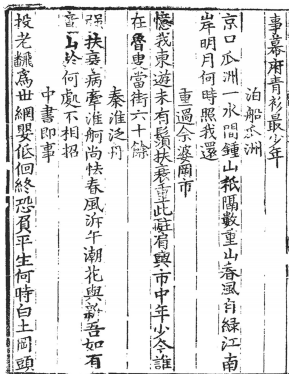 事幕府青衫最少年
泊船瓜洲
京口瓜洲一水間鍾山秖隔數重山春風自綠江南
岸明月何時照我還
重過余婆岡市
憶我東遊未有鬚扶衰重此駐肩輿市中年少今誰
在魯叟當街六十餘
秦淮泛舟
强扶衰病牽淮舸尚怯春風泝午潮花與新吾如有
意山於何處不相招
中書即事
投老翻為世網嬰低佪終恐負平生何時白土岡頭